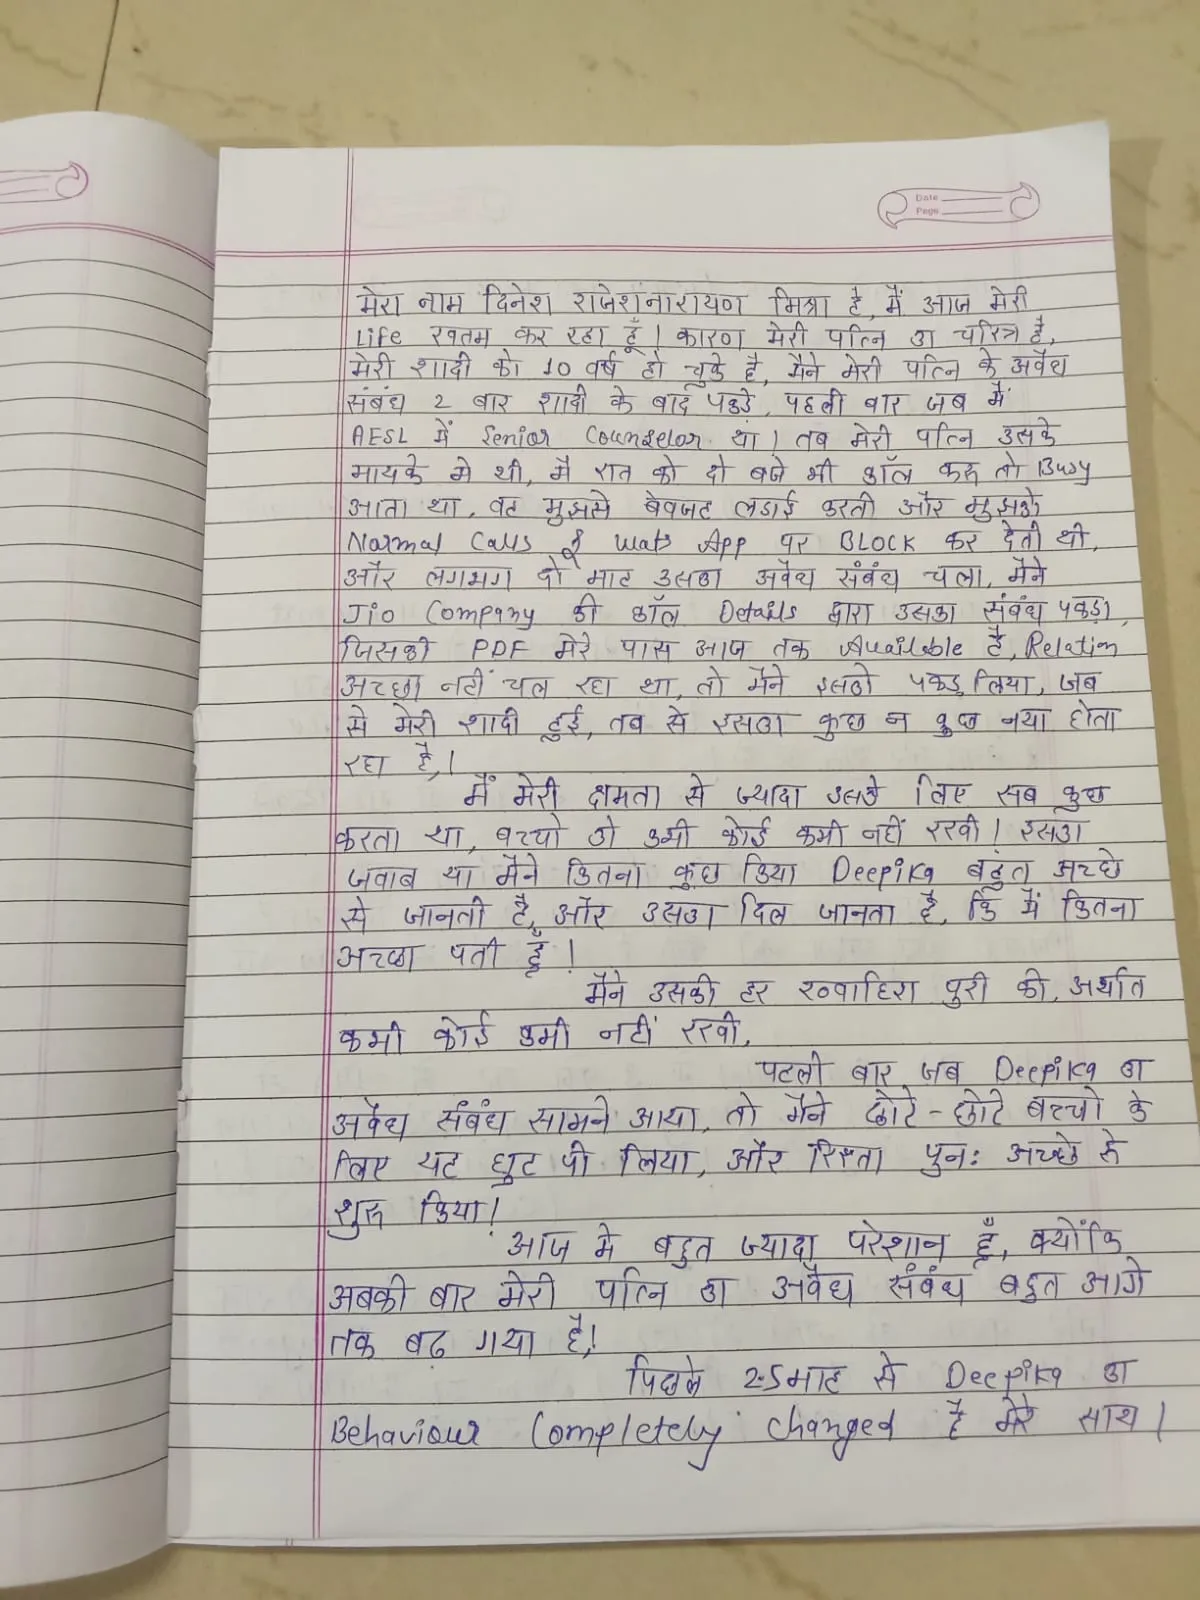 Date
Page
मेरा नाम दिनेश राजेशनारायण मिश्रा है, मैं आज मेरी
Life खतम कर रहा हूँ। कारण मेरी पत्नि का चरित्र है,
मेरी शादी को 10 वर्ष हो चुके है, मैने मेरी पत्नि के अवैध
संबंध 2 बार शादी के बाद पकडे, पहली बार जब मैं
AESL में Senior Counselor था। तब मेरी पत्नि उसके
मायके मे थी, मै रात को दो बजे भी कॉल करू तो Busy
आता था, वह मुझसे बेवजह लडाई करती और मुझको
Normal Calls & Wats App पर BLOCK कर देती थी,
और लगभग दो माह उसका अवैध संबंध चला, मैने
Jio Company की कॉल Details द्वारा उसका संबंध पकड़ा,
जिसकी PDF मेरे पास आज तक Available है, Relation
अच्छा नहीं चल रहा था, तो मैने इसको पकड़ लिया, जब
से मेरी शादी हुई, तब से इसका कुछ न कुछ नया होता
रहा है,।
मैं मेरी क्षमता से ज्यादा उसके लिए सब कुछ
करता था, बच्चो को कभी कोई कमी नहीं रखी। इसका
जवाब या मैने कितना कुछ किया Deepika बहुत अच्छे
से जानती है, और उसका दिल जानता है, कि में कितना
अच्छा पती हूँ।
मैने उसकी हर ख्वाहिश पुरी की, अर्थात
कभी कोई कमी नहीं रखी,
पहली बार जब Deepika का
अवैध संबंध सामने आया, तो मैने छोटे-छोटे बच्चो के
लिए यह घुट पी लिया, और रिस्ता पुनः अच्छे से
शुरू किया।
आज मे बहुत ज्यादा परेशान हूँ, क्योंकि
अबकी बार मेरी पत्नि का अवैध संबंध बहुत आगे
तक बढ़ गया है,।
पिछले 2.5माह से Deepika का
Behaviour Completely changed है मेरे साथ।